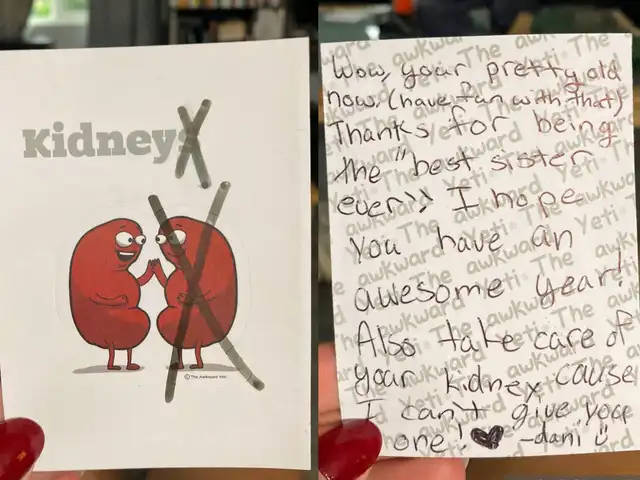 Kidneys
© The Awkward Yeti
Wow, your pretty old
now. (have fun with that)
Thanks for being
the "best sister
ever>> I hope
you have an
awesome year!
Also take care of
your kidney cause
I can't give you
one! ♥ -dani